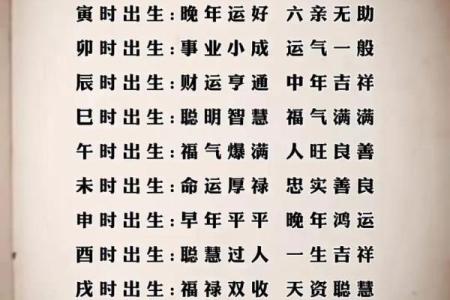 寅时出生:晚年运好 六亲无助
卯时出生:事业小成 运气一般
辰时出生:财运亨通 中年吉祥
巳时出生:聪明智慧 福气满满
午时出生:福气爆满 人旺良善
未时出生:命运厚禄 忠实善良
申时出生:早年平平 晚年鸿运
酉时出生:聪慧过人 一生吉祥
戌时出生:福禄双收 天资聪慧